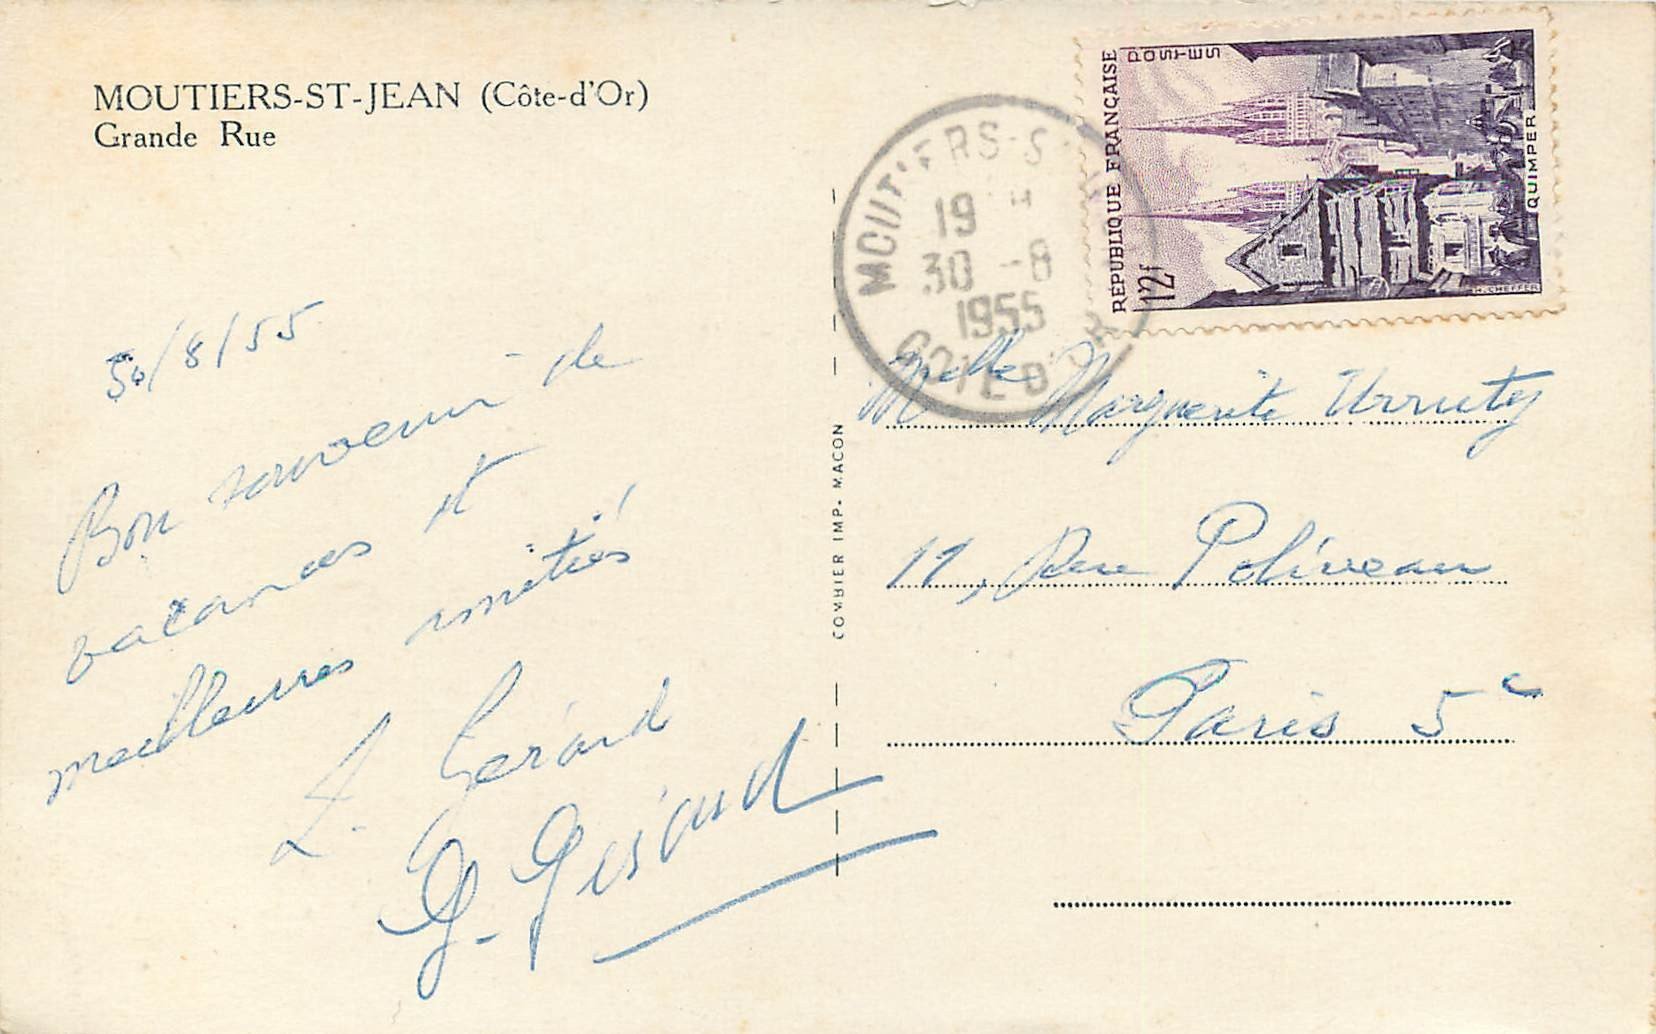 MOUTIERS-ST-JEAN (Côte-d'Or)
Grande Rue
30/8/55
Bon souvenir de
vacances et
meilleures amitiés
L. Gérard
G. Gérard
COMBIER IMP. MACON
RÉPUBLIQUE FRANÇAISE
POSTES
12F
QUIMPER
H. CHEFFER
MOUTIERS-S
19 H
30 -8
1955
COTE D'OR
Melle Marguerite Urruty
11, Rue Poliveau
Paris 5e